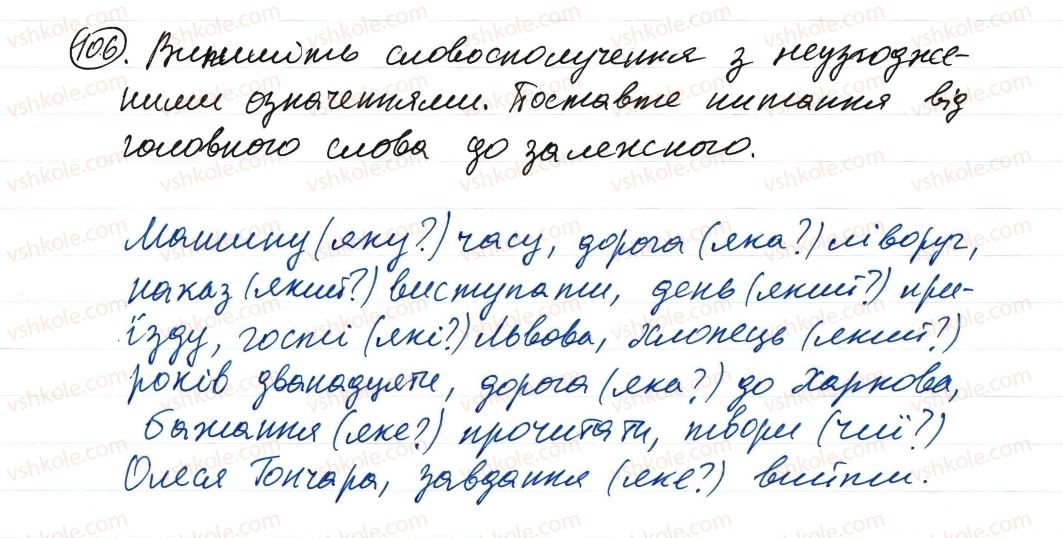 106. Випишіть словосполучення з неузгодже-
ними означеннями. Поставте питання від
головного слова до залежного.
Машину (яку?) часу, дорога (яка?) ліворуч,
наказ (який?) виступати, день (який?) при-
їзду, гості (які?) Львова, хлопець (який?)
років дванадцяти, дорога (яка?) до Харкова,
бажання (яке?) прочитати, твори (чиї?)
Олеся Гончара, завдання (яке?) вийти.